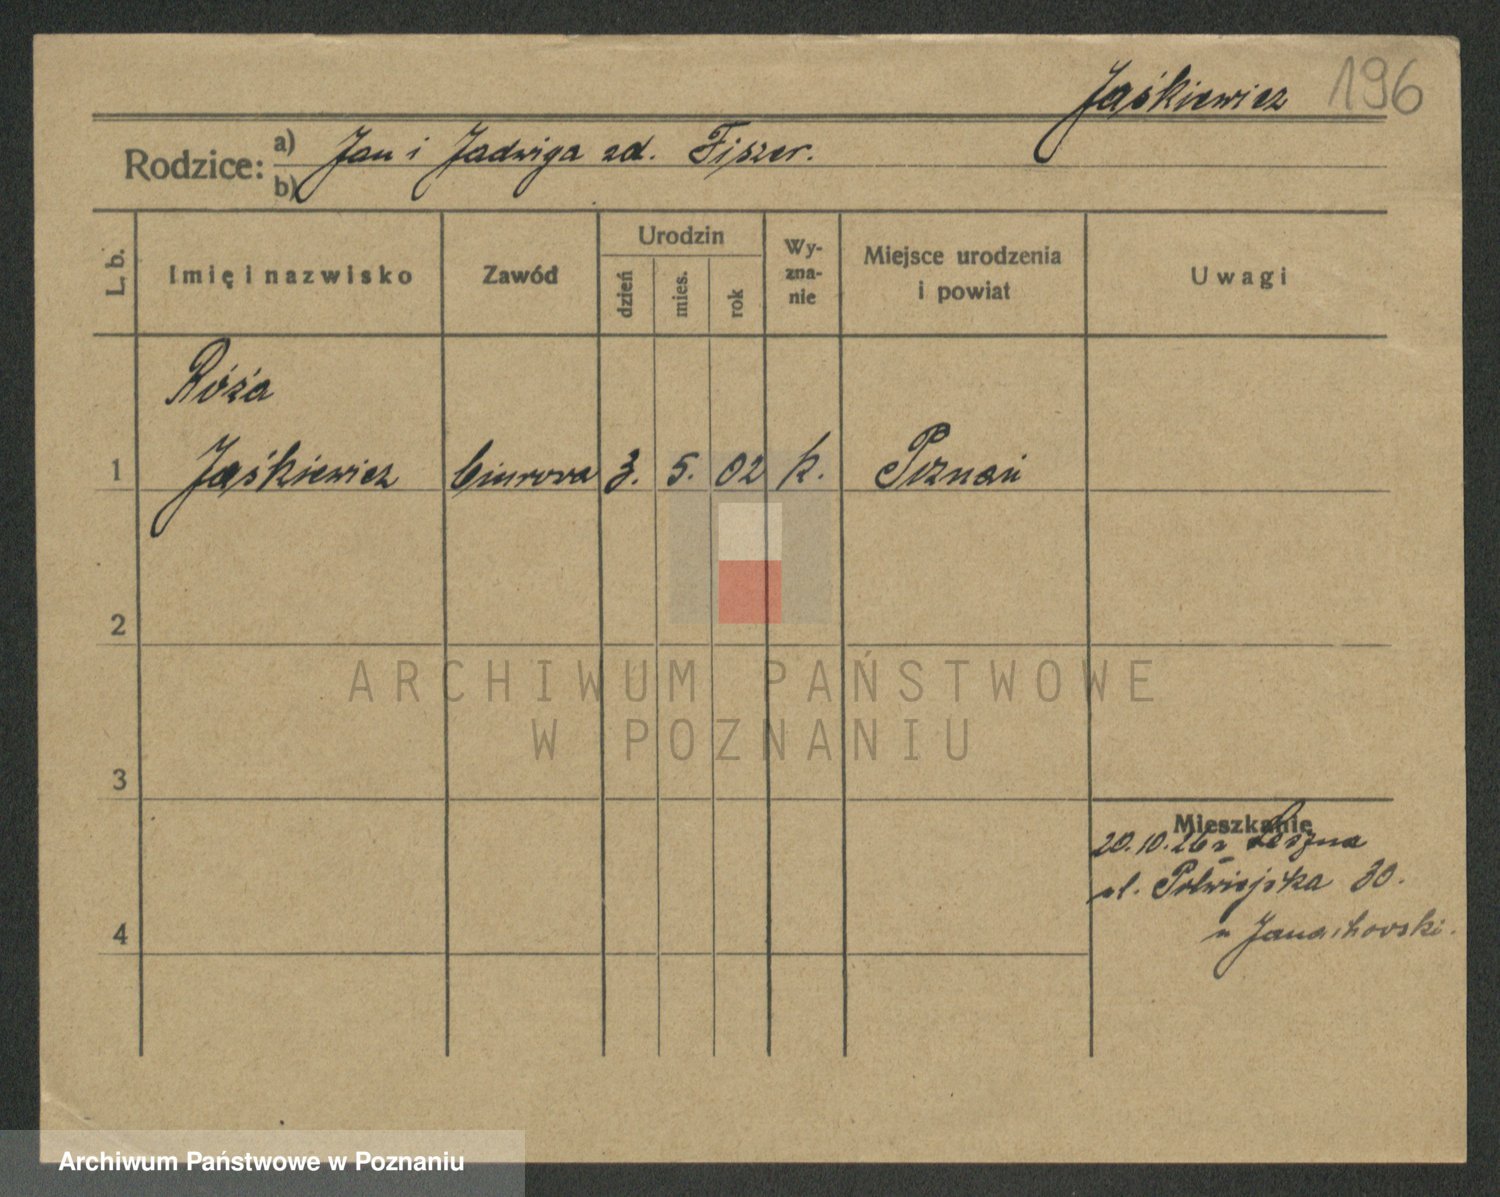 Jaśkiewicz 196
Rodzice: a) Jan i Jadwiga zd. Fiszer.
b)
L. b.
Imię i nazwisko
Zawód
Urodzin
dzień
mies.
rok
Wy-
zna-
nie
Miejsce urodzenia
i powiat
Uwagi
Róża
1 Jaśkiewicz biurowa 3. 5. 02 k. Poznań
2
3
4
ARCHIWUM PAŃSTWOWE
W POZNANIU
Mieszkanie
20.10.26 z Leszna
ul. Półwiejska 30.
Archiwum Państwowe w Poznaniu